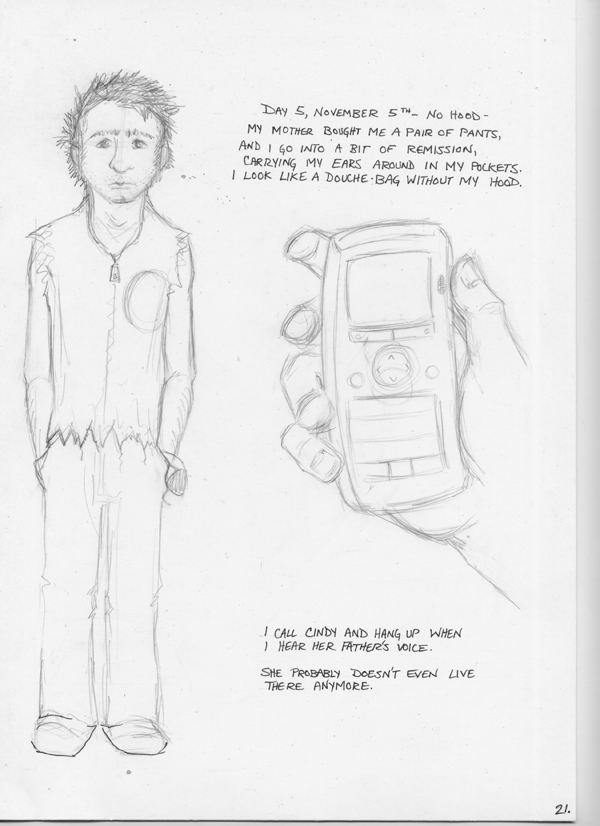 DAY 5, NOVEMBER 5TH - NO HOOD -
MY MOTHER BOUGHT ME A PAIR OF PANTS,
AND I GO INTO A BIT OF REMISSION,
CARRYING MY EARS AROUND IN MY POCKETS.
I LOOK LIKE A DOUCHE-BAG WITHOUT MY HOOD.
I CALL CINDY AND HANG UP WHEN
I HEAR HER FATHER'S VOICE.
SHE PROBABLY DOESN'T EVEN LIVE
THERE ANYMORE.
21.